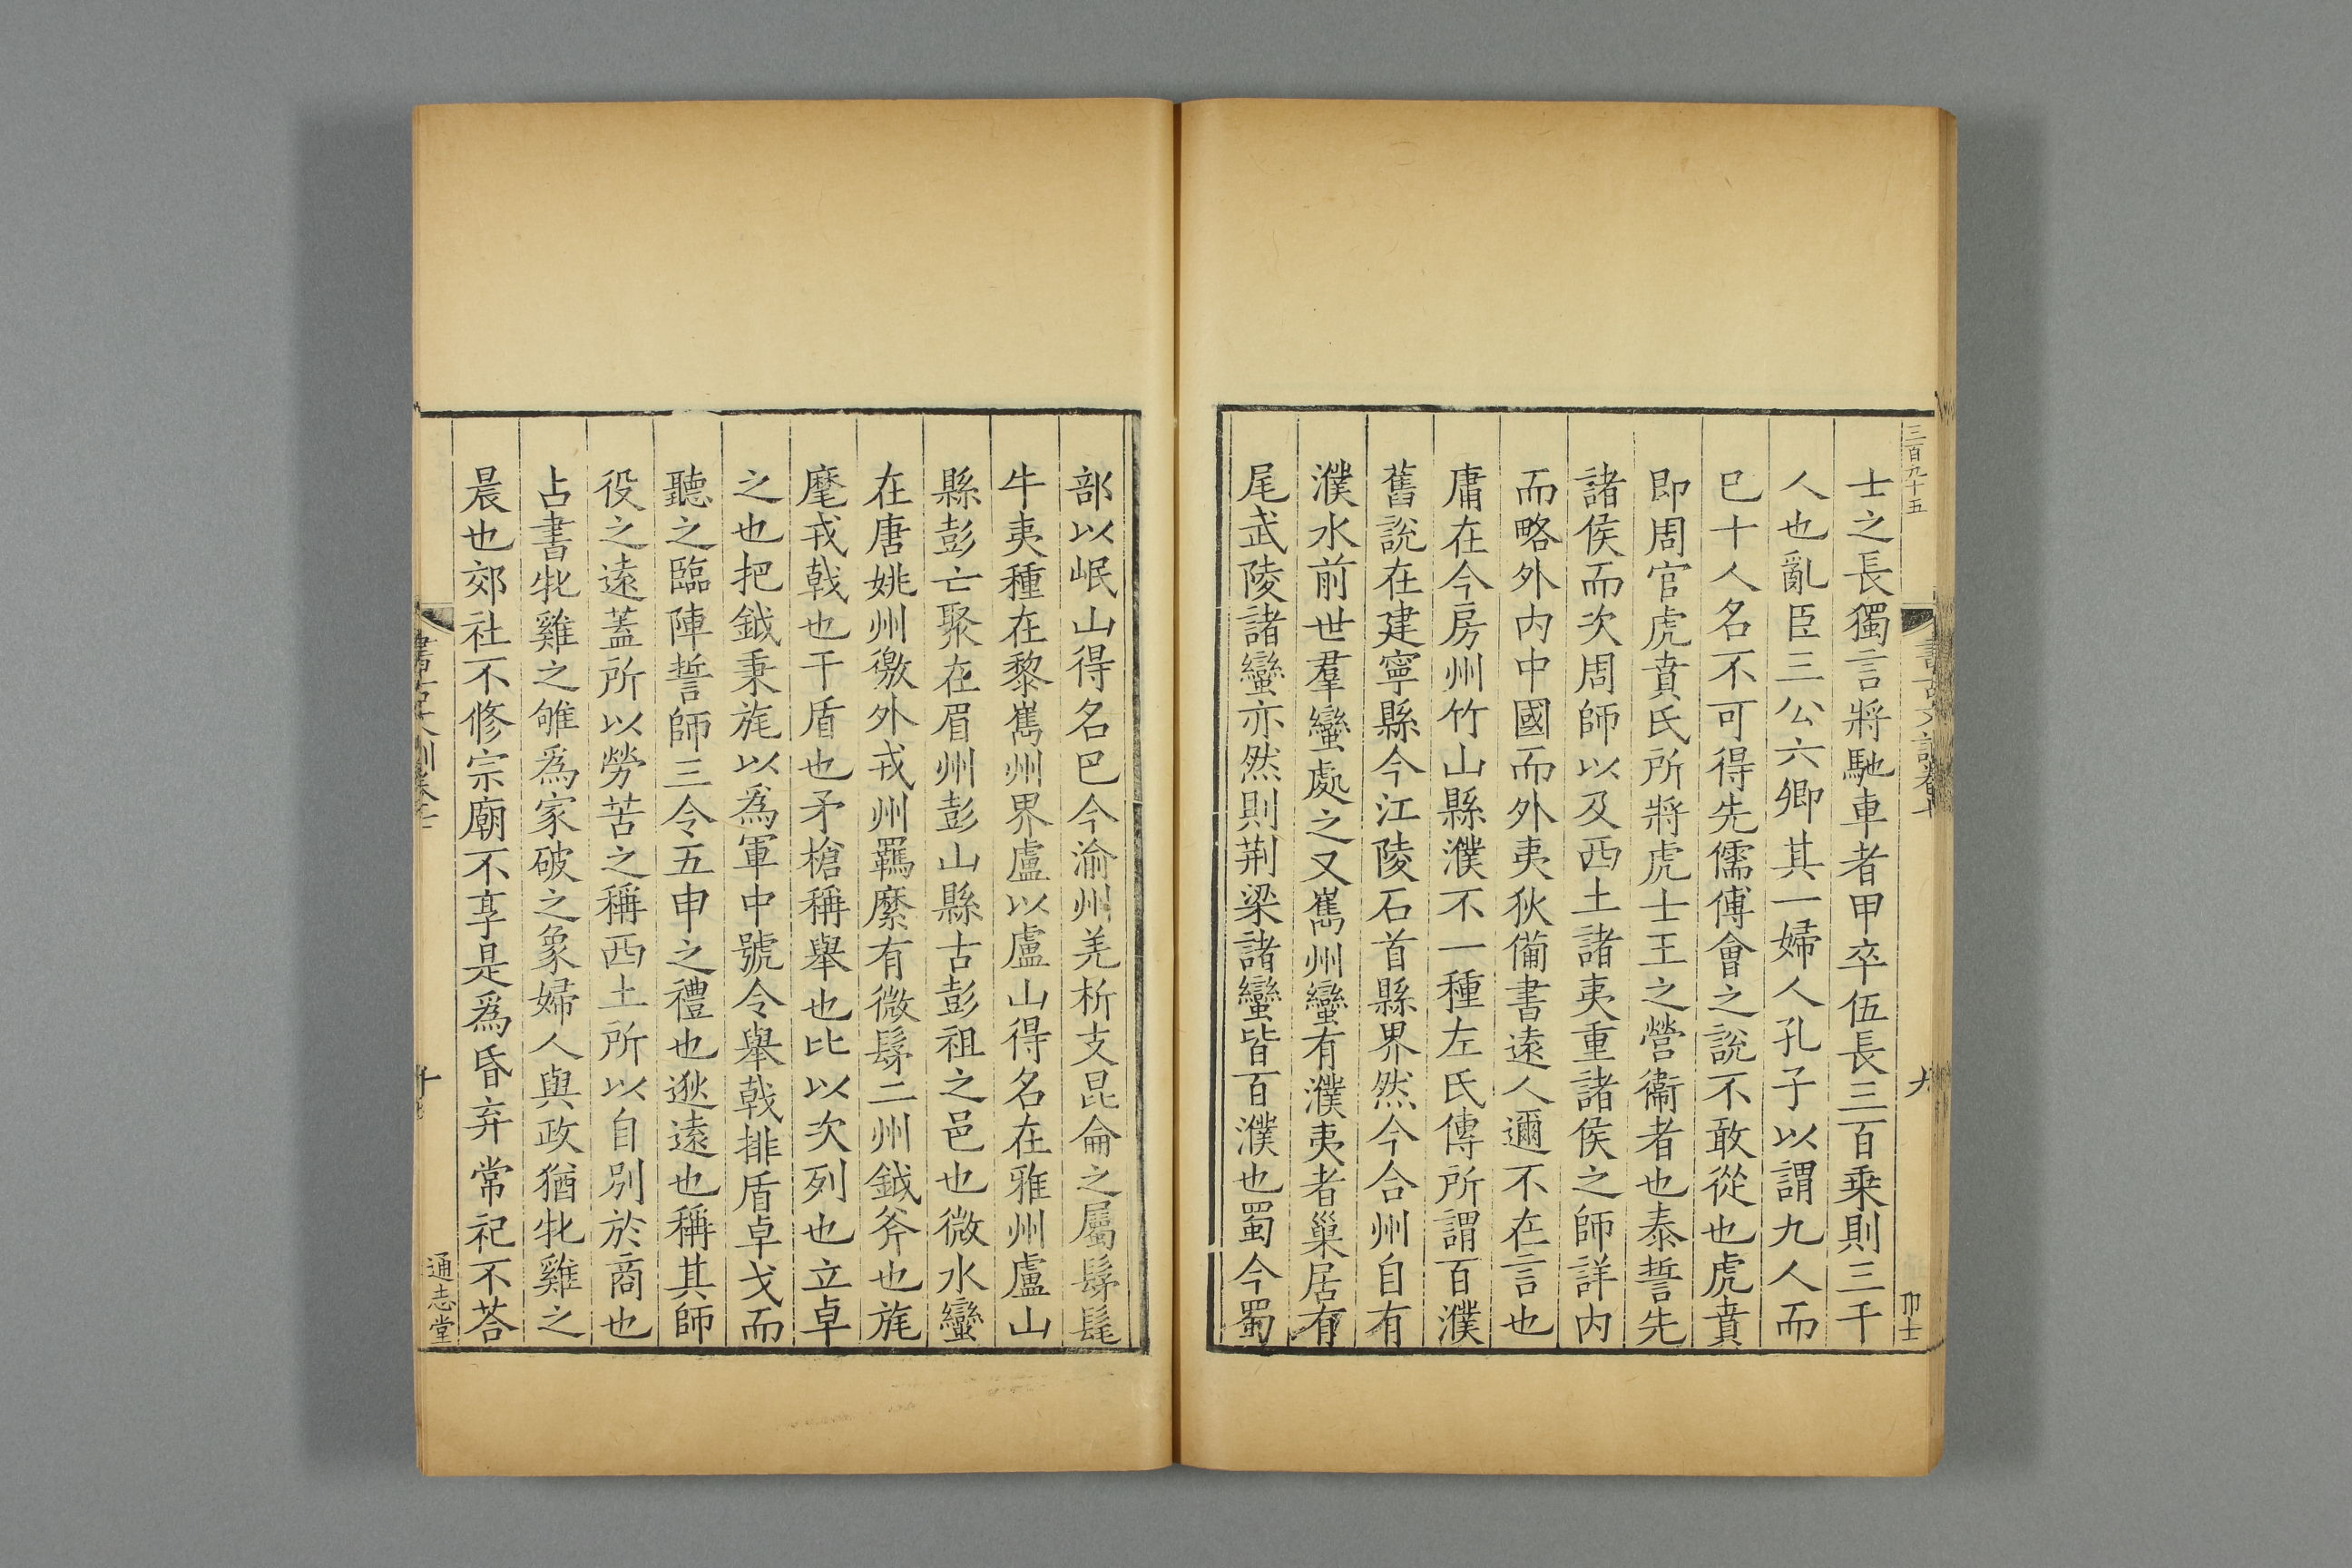 三百九十五
士之長獨言將馳車者甲卒伍長三百乗則三千
人也亂臣三公六卿其一婦人孔子以謂九人而
已十人名不可得先儒傅會之說不敢從也虎賁
即周官虎賁氏所將虎士王之營衞者也泰誓先
諸侯而次周師以及西土諸夷重諸侯之師詳内
而略外内中國而外夷狄備書逺人邇不在言也
庸在今房州竹山縣濮不一種左氏傳所謂百濮
舊説在建寧縣今江陵石首縣界然今合州自有
濮水前世羣蠻處之又嶲州蠻有濮夷者巢居有
尾武陵諸蠻亦然則荆梁諸蠻皆百濮也蜀今蜀
部以岷山得名巴今渝州羌析支昆侖之屬髳髦
牛夷種在黎嶲州界盧以盧山得名在雅州盧山
縣彭亡聚在眉州彭山縣古彭祖之邑也微水蠻
在唐姚州徼外戎州羈縻有微髳二州鉞斧也旄
麾戎戟也干盾也矛槍稱舉也比以次列也立卓
之也把鉞秉旄以爲軍中號令舉戟排盾卓戈而
聽之臨陣誓師三令五申之禮也逖遠也稱其師
役之遠蓋所以勞苦之稱西土所以自别於商也
占書牝雞之雊爲家破之象婦人與政猶牝雞之
晨也郊社不修宗廟不享是爲昏弃常祀不荅
通志堂